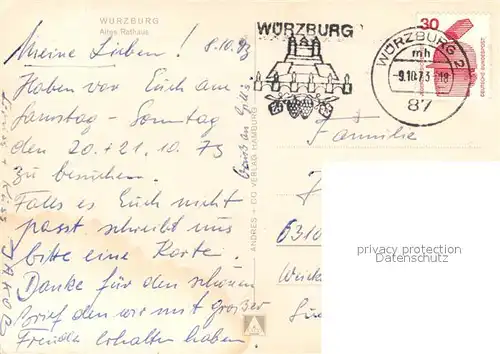 WÜRZBURG
Altes Rathaus
8.10.73
Meine Lieben!
Haben vor Euch am
Samstag - Sonntag
den 20. + 21.10.73
zu besuchen.
Falls es Euch nicht
passt schreibt uns
bitte eine Karte.
Danke für den schönen
Brief den wir mit großer
Freude erhalten haben.
JAKOB
ANDRES + CO VERLAG HAMBURG
WÜRZBURG
WÜRZBURG 2
mh
-9.10.73.-18
87
30
Familie